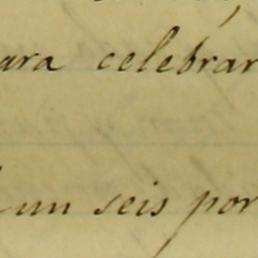 ara celebrar
un seis por